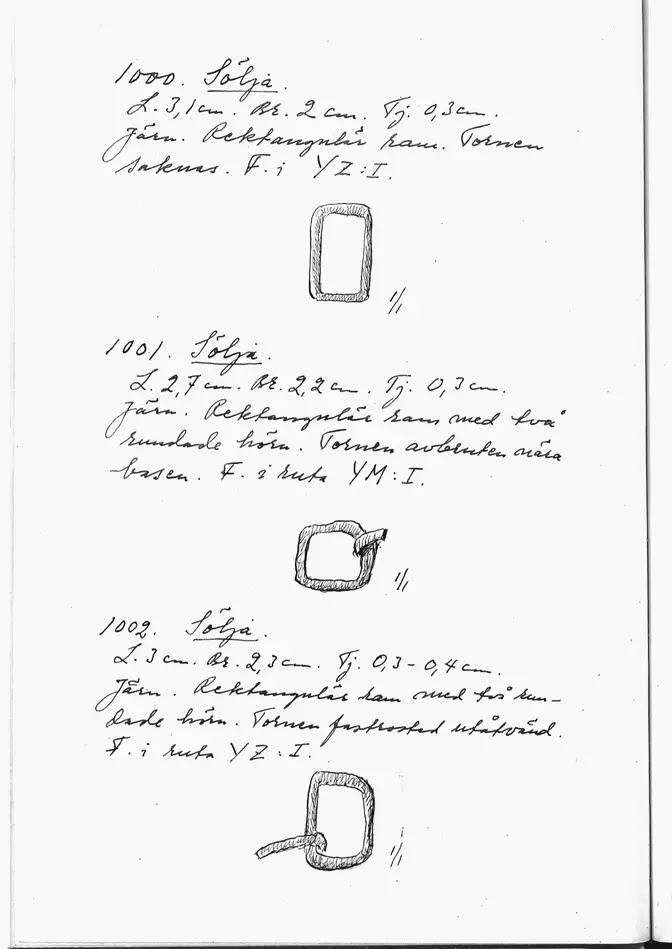 1000. Sölja.
L. 3,1 cm. Br. 2 cm. Tj. 0,3 cm.
Järn. Rektangulär ram. Tornen
saknas. F. i YZ:I.
1/1
1001. Sölja.
L. 2,7 cm. Br. 2,2 cm. Tj. 0,3 cm.
Järn. Rektangulär ram med två
rundade hörn. Tornen avbruten nära
basen. F. i ruta YM:I.
1/1
1002. Sölja.
L. 3 cm. Br. 2,3 cm. Tj. 0,3-0,4 cm.
Järn. Rektangulär ram med två run-
dade hörn. Tornen fastrostad utåtvänd.
F. i ruta YZ:I.
1/1